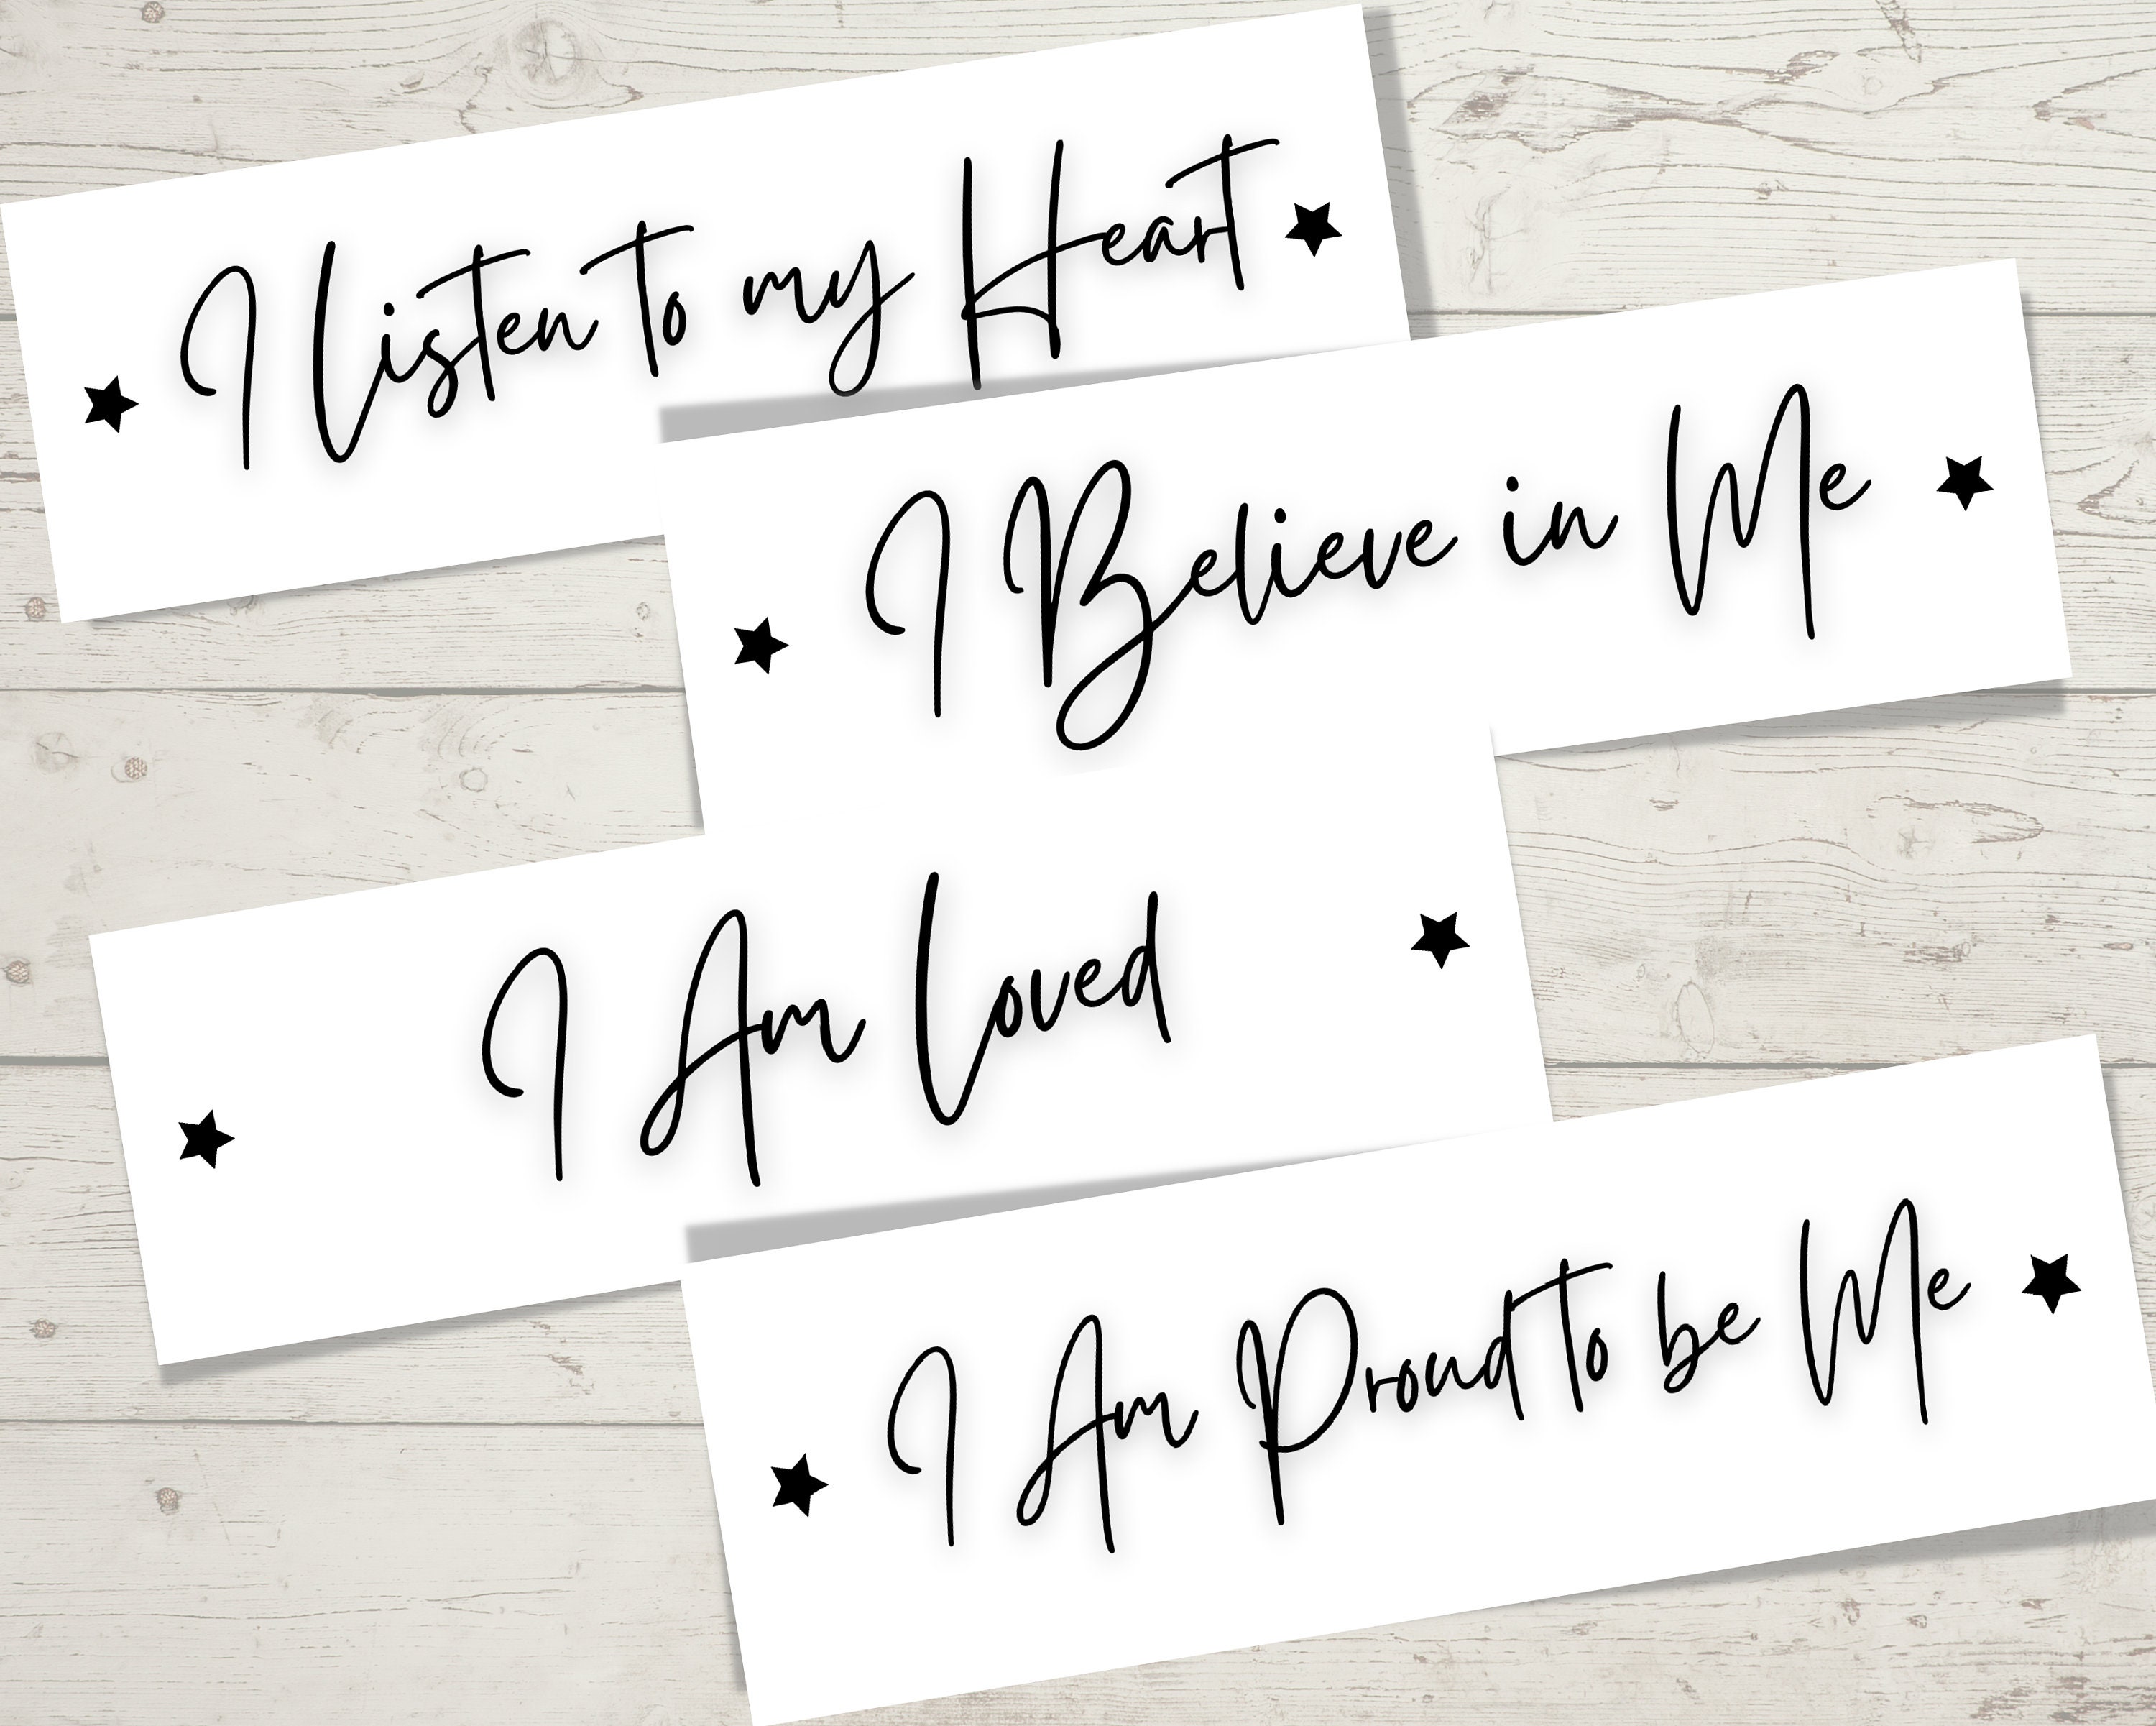 I Listen to my Heart
I Believe in Me
I Am Loved
I Am Proud to be Me